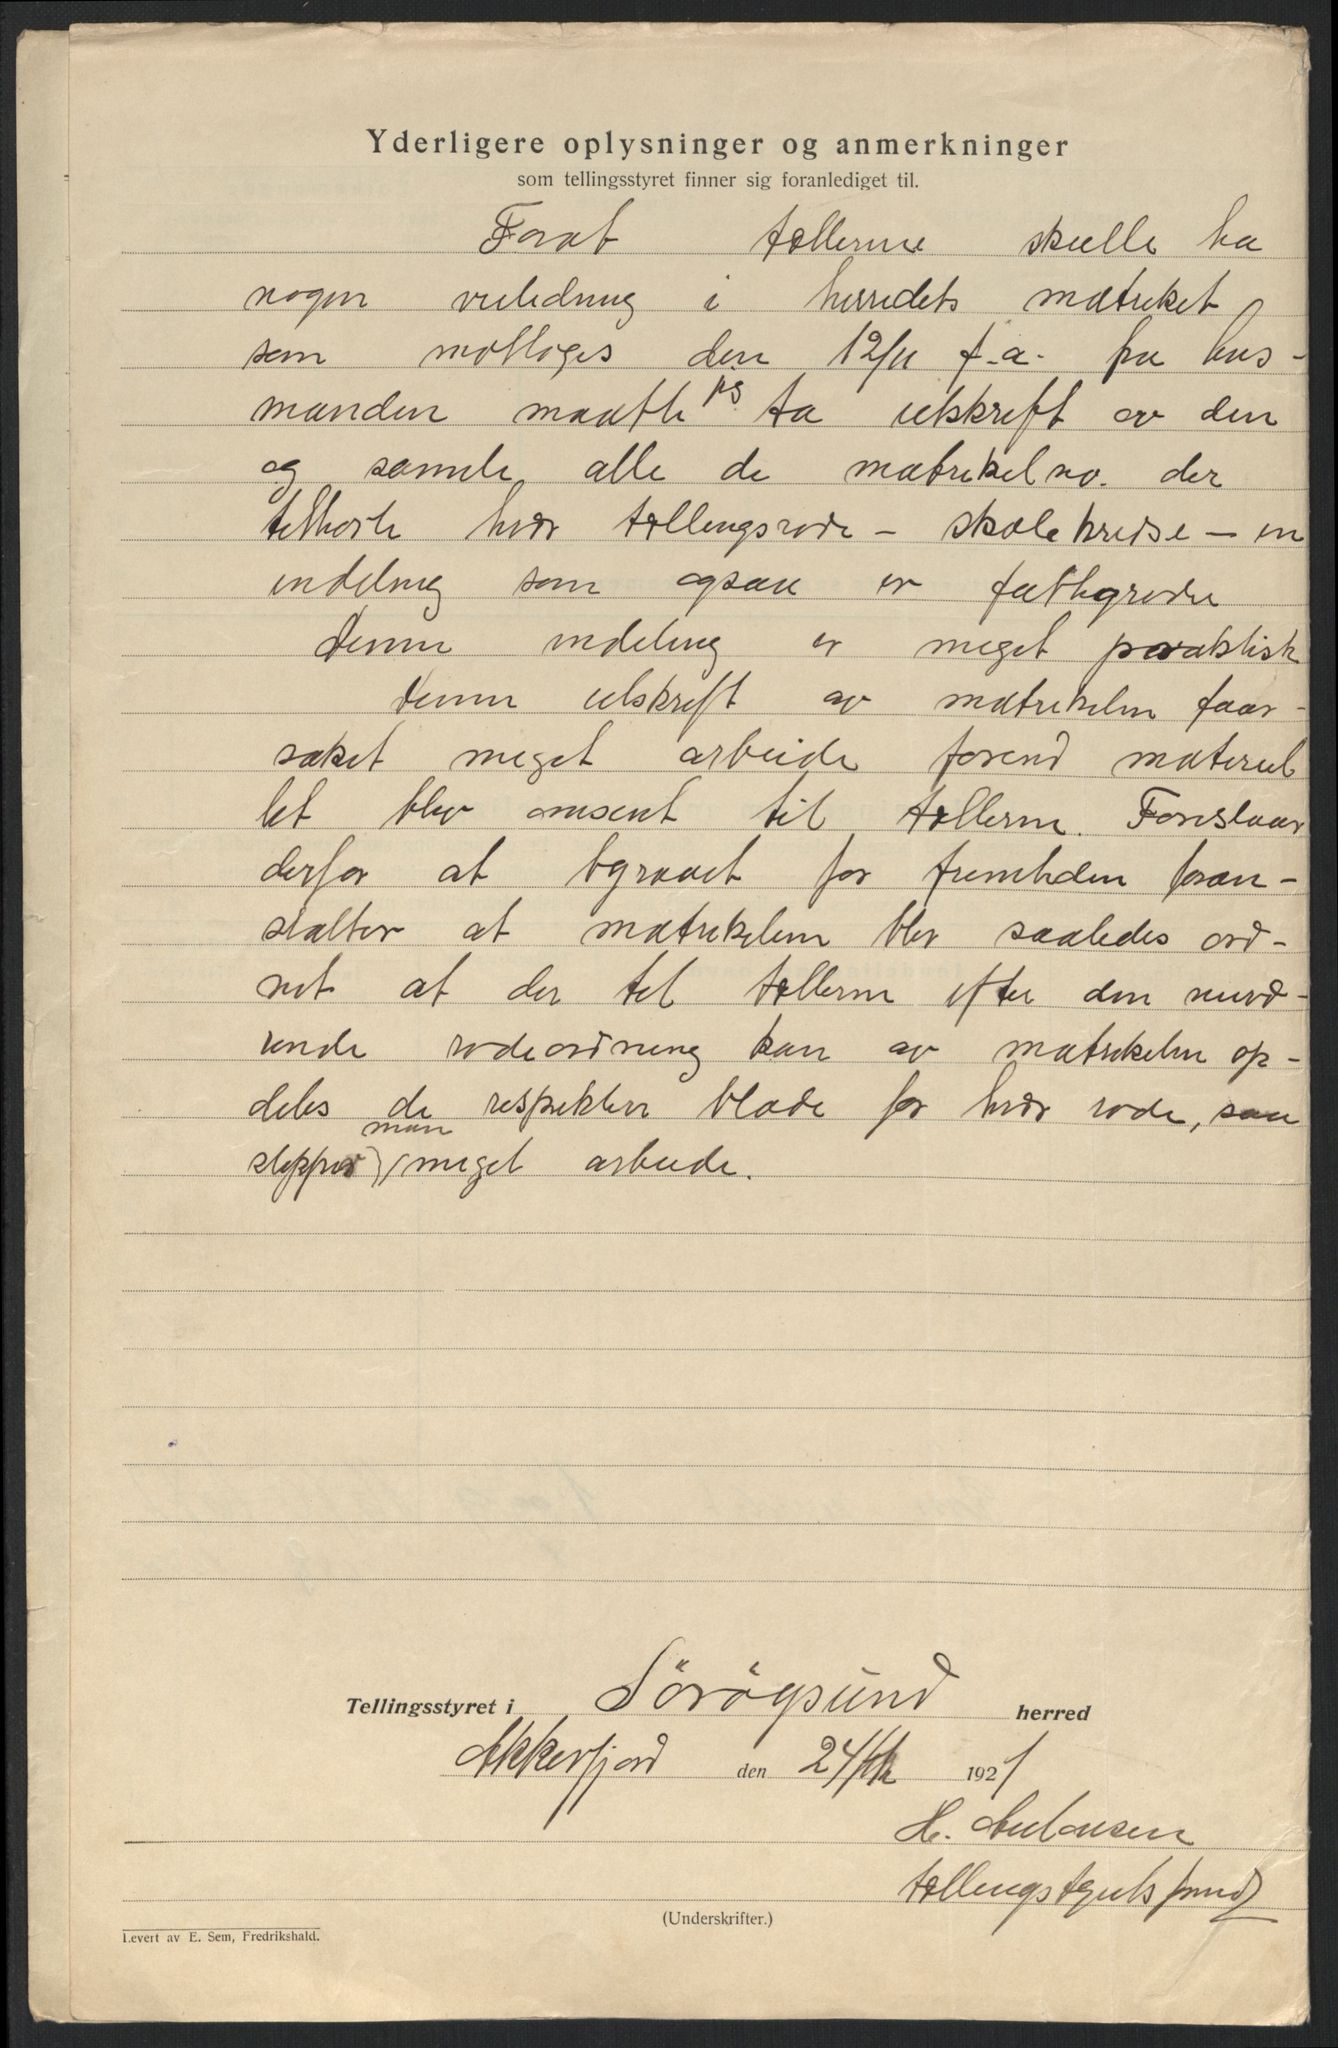 Yderligere oplysninger og anmerkninger
som tellingsstyret finner sig foranlediget til.
Forat tællerne skulle ha
nogen veiledning i herredets matrikel
som mottoges den 12/11 f. a. fra lens-
manden maatte jeg ta utskrift av den
og samle alle de matrikelno. der
tilhørte hver tællingsrode – skolekredse – en
inddeling som ogsaa er fattigroder
Denne inddeling er meget praktisk
Denne utskrift av matrikelen foraar-
saket meget arbeide forend materiel
let blev omsent til tællerne. Foreslaar
derfor at byraaet for fremtiden foran-
stalter at matrikelen blev saaledes ord-
net at der til tællerne efter den nuvæ-
rende rodeordning kan av matrikelen op-
deles de respektive blade for hver rode, saa
slipper man meget arbeide.
Tellingsstyret i Sörögsund herred
Akkerfjord den 24/ 1921
H.
tællingstyrets formd
(Underskrifter.)
Levert av E. Sem, Fredrikshald.